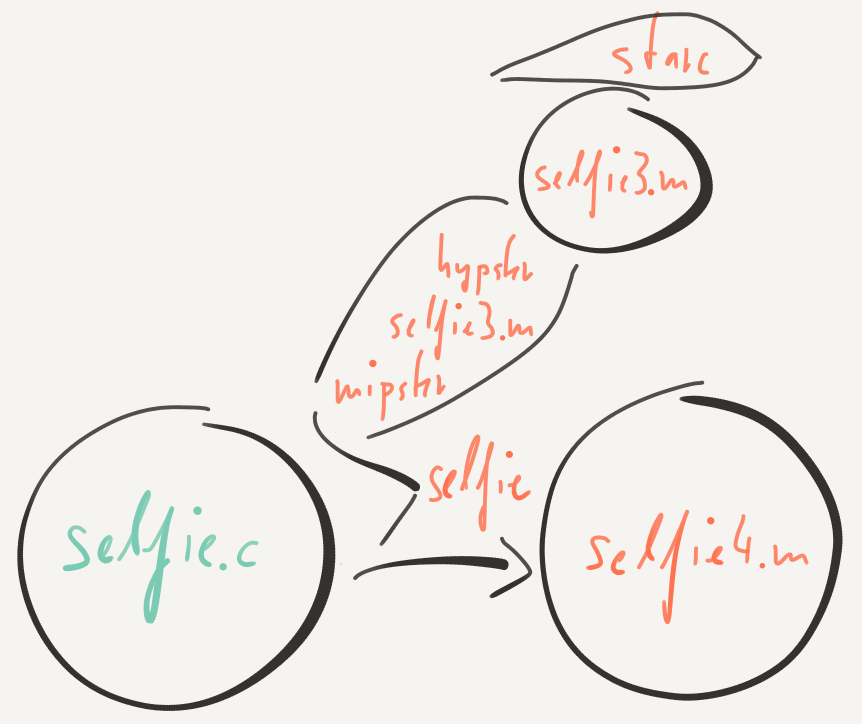 starc
selfie3.m
hypster
selfie3.m
mipster
selfie
selfie.c
selfie4.m